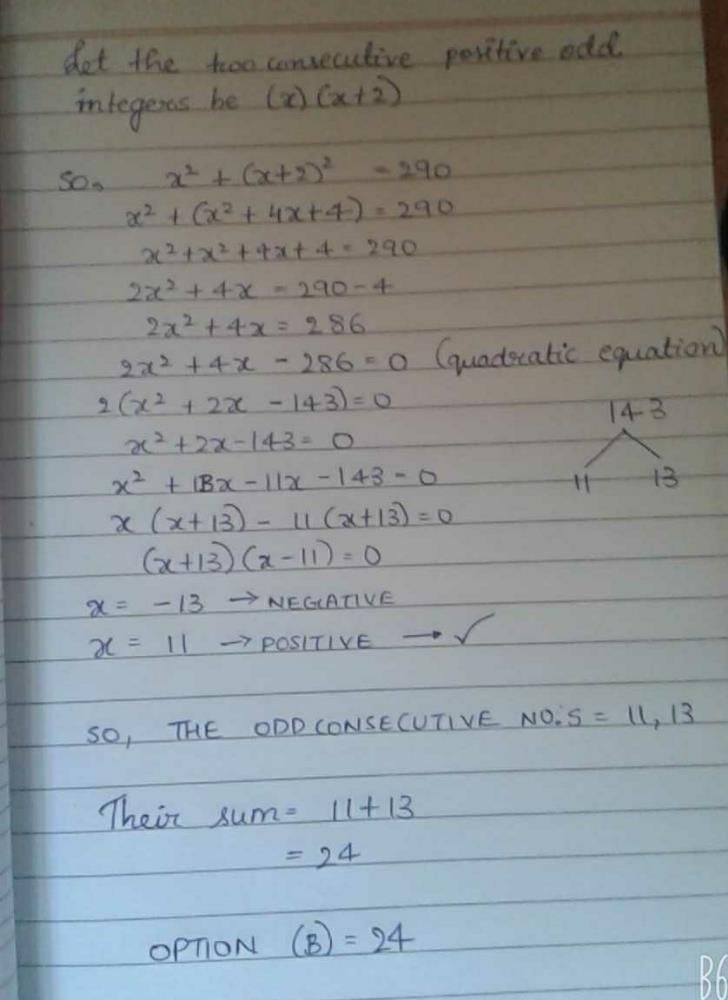 Let the two consecutive positive odd
integers be (x) (x+2)
So, x² + (x+2)² = 290
x² + (x² + 4x+4) = 290
x² + x² + 4x + 4 = 290
2x² + 4x = 290-4
2x² + 4x = 286
2x² + 4x - 286 = 0 (quadratic equation)
2(x² + 2x - 143) = 0
143
x² + 2x - 143 = 0
11 13
x² + 13x - 11x - 143 = 0
x (x+13) - 11 (x+13) = 0
(x+13) (x-11) = 0
x = -13 → NEGATIVE
x = 11 → POSITIVE → ✓
SO, THE ODD CONSECUTIVE NO:S = 11, 13
Their sum = 11+13
= 24
OPTION (B) = 24
B6